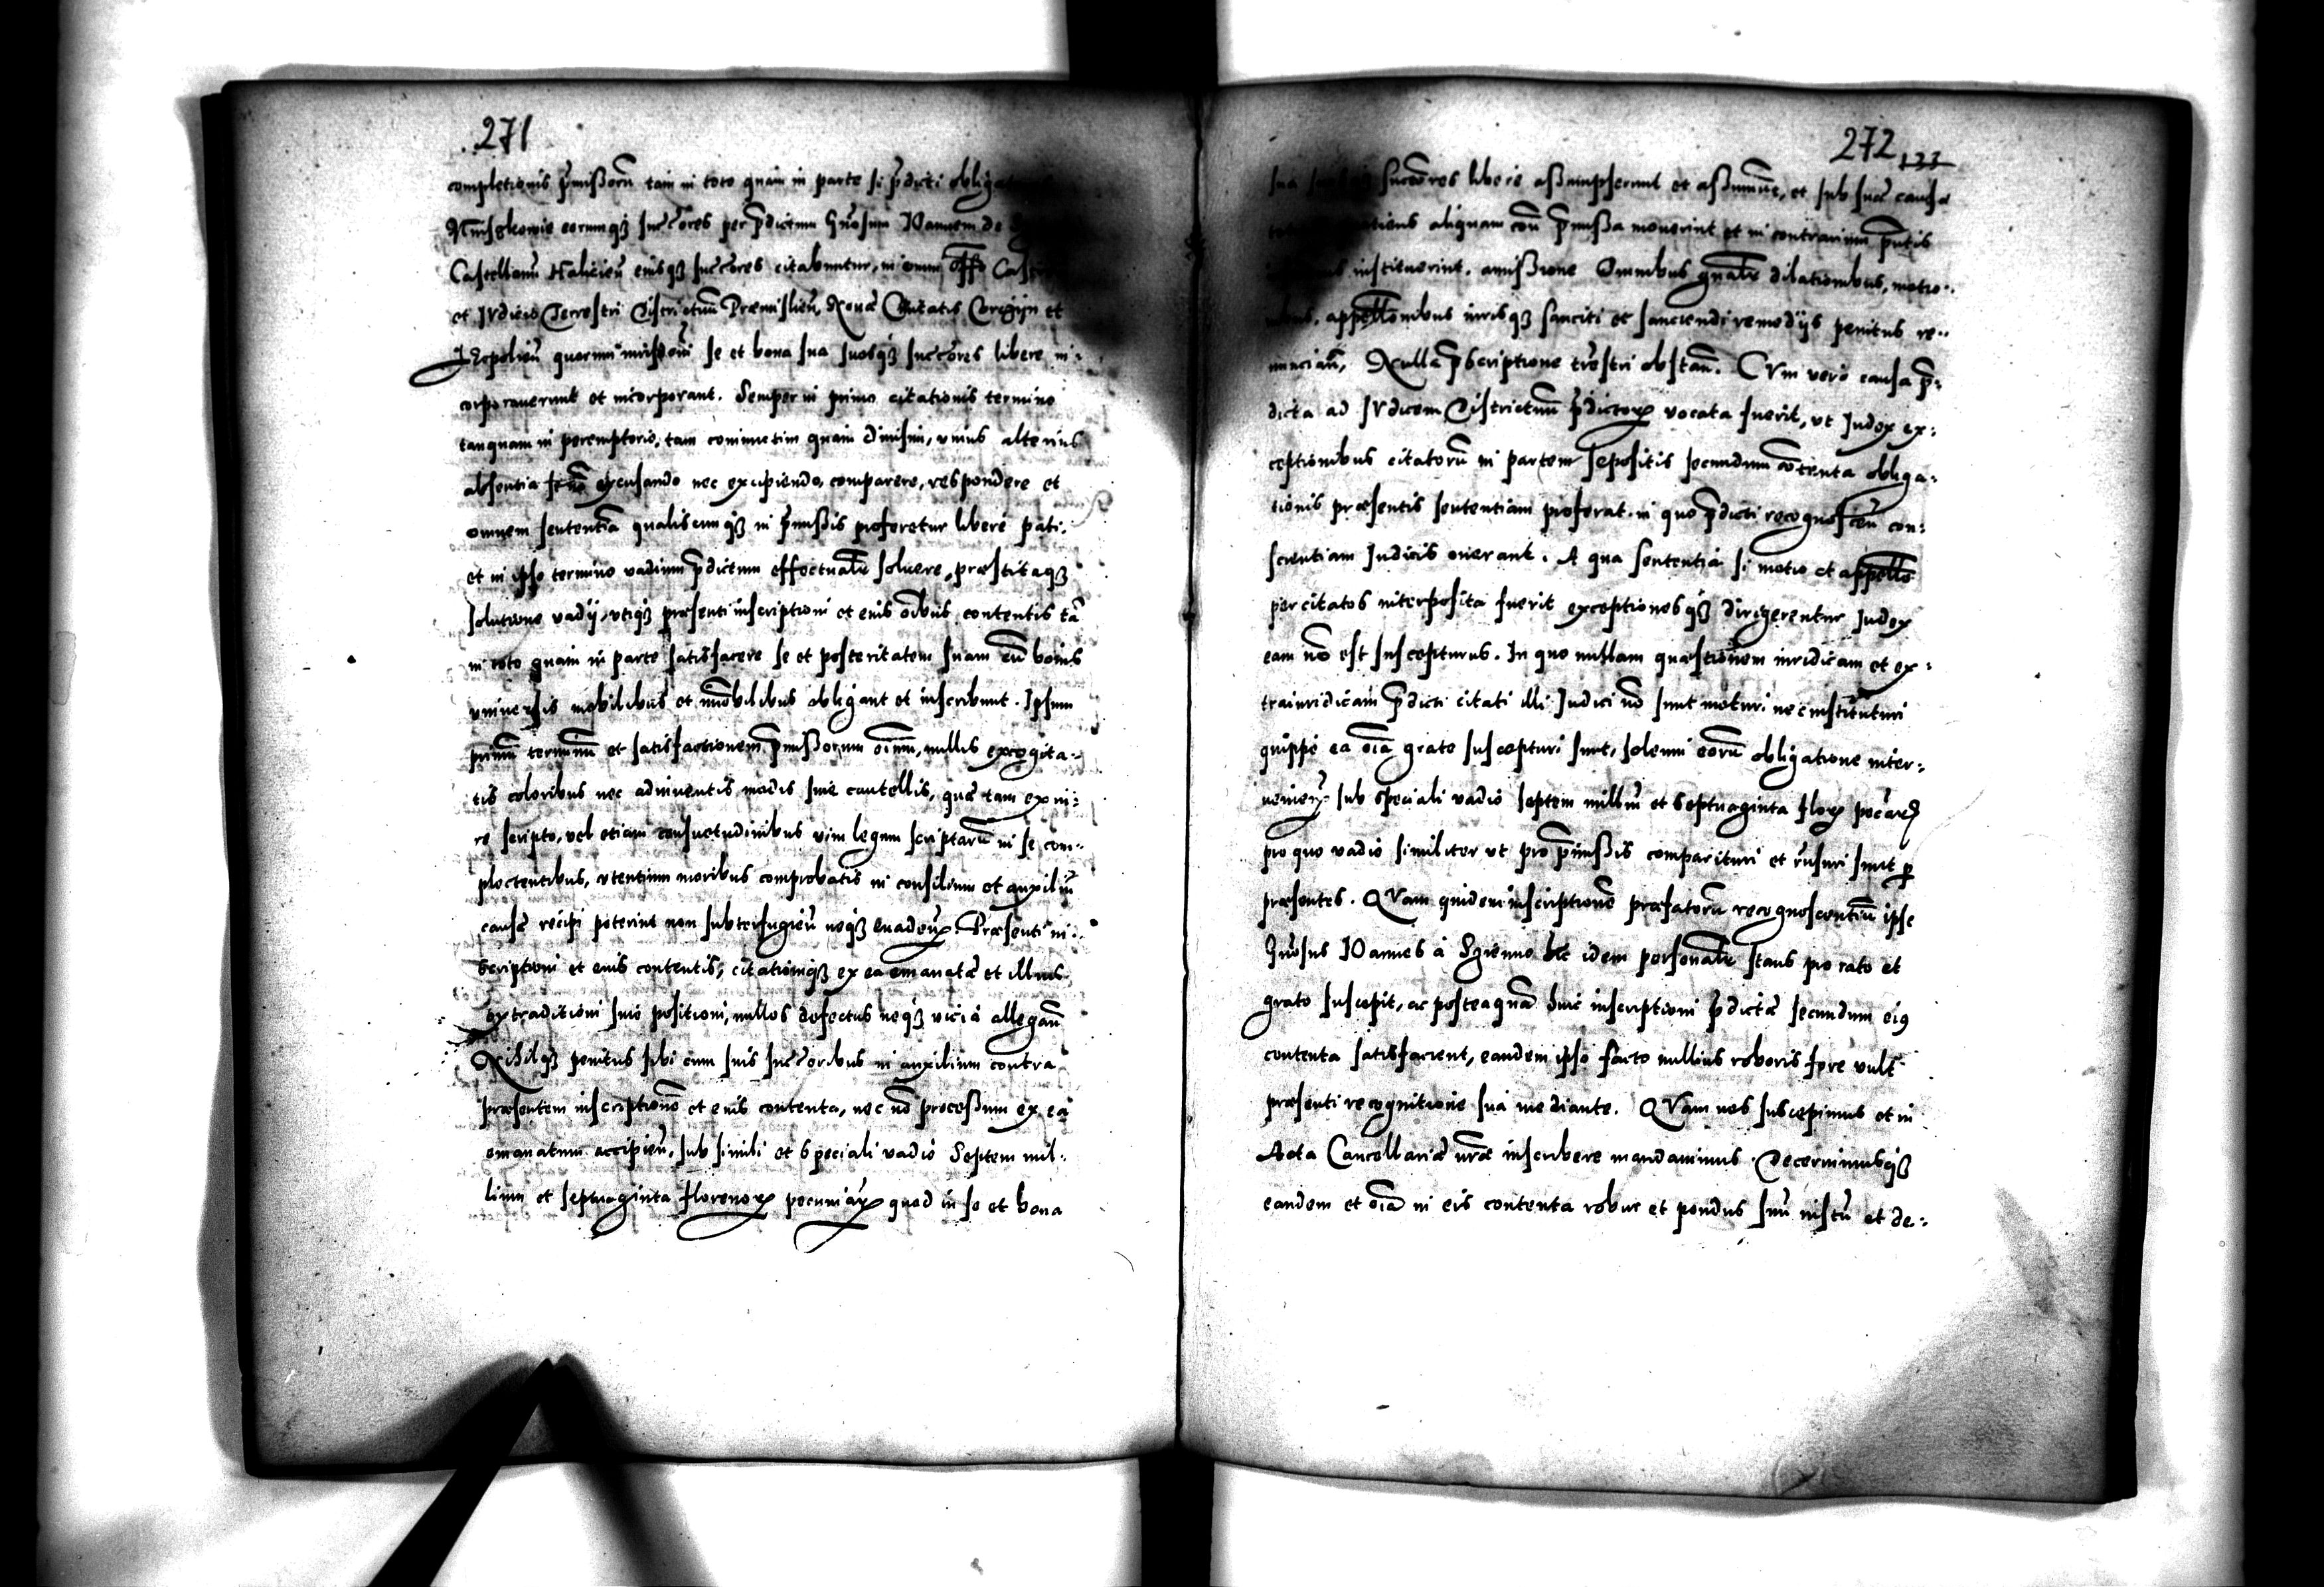 271
completionis p̄missorū tam in toto quam in parte si p̄dicti
eorumq₃ succ̄ores per p̄dictum Gn̄osum Ioannem de
Castellanū Halicieñ eiusq₃ succ̄ores citabuntur, in omni offō
et Iudicio Terrestri districtuū Præmislieñ, Nouæ Ciuitatis Corczyn et
quorum se et bona sua suosq₃ succ̄ores libere in:
corporauerunt et incorporant. Semper in primo citationis termino
tanquam in peremptorio, tam coniunctim quam diuisim, vnius alterius
absentia excusando nec excipiendo, comparere, respondere et
omnem sententiā qualiscumq₃ in p̄missis proferetur liberè pati:
et in ipso termino vadium p̄dictum effectual̄r soluere, præstitaq₃
solutione vadij, vtiq₃ præsenti inscriptioni et eius oībus contentis tā
in toto quam in parte satisfacere se et posteritatem suam cū bonis
vniuersis mobilibus et īmobilibus obligant et inscribunt. Ipsum
primū terminū et satisfactionem p̄missorum oīum, nullis excogita:
tis coloribus nec adinuentis modis siue cautellis, quæ tam ex iu:
re scripto, vel etiam consuetudinibus vim legum scriptarū in se com:
plectentibus, vtentium moribus comprobatis in consilium et auxiliū
causæ recipi poterint non subterfugieñ neq₃ euadeñ. Præsenti in:
scriptioni et eius contentis, citationiq₃ ex ea emanatæ et illius
extraditioni siue positioni, nullos defectus neq₃ vicia allegañ
Nihilq₃ penitus sibi cum suis succ̄oribus in auxilium contra
præsentem inscriptionē et eius contenta, nec nō processum ex ea
emanatum accipieñ, sub simili et speciali vadio Septem mil:
lium et septuaginta florenoꝝ pecuniaꝝ quod in se et bona
272
133
sua succ̄ores libere assumpserunt et assumunt, et sub suæ causæ
aliquam coñ p̄missa mouerint et in contrarium p̄ntis
instituerint. amissione Omnibus gnal̄r dilationibus, motio:
appell̄onibus iurisq₃ sanciti et sanciendi remedijs penitus re:
nunciañ, Nulla p̄scriptione tr̄estri obstañ. CVm vero causa p̄:
dicta ad Iudicem districtuū p̄dictoꝝ vocata fuerit, vt Iudex ex:
ceptionibus citatorū in partem sepositis secundum cōtenta obliga:
tionis præsentis sententiam proferat. in quo p̄dicti recognosceñ con:
scientiam Iudicis onerant. A qua sententia si motio et appell̄o
per citatos interposita fuerit exceptionesq₃ dirigerentur Iudex
eam nō est suscepturus. In quo nullam quæstionem iuridicam et ex:
traiuridicam p̄dicti citati illi Iudici nō sunt moturi nec instituturi
quippe ea oīa grato suscepturi sunt, solemni eorū obligatione inter:
venieñ: sub speciali vadio septem milliū et septuaginta floꝝ
pro quo vadio similiter vt pro p̄missis comparituri et rn̄suri sunt ꝑ
præsentes. QVam quidem inscriptionē præfatorū recognoscentiū ipse
Gn̄osus Ioannes à Szienno hic idem personal̄r stans pro rato et
grato suscepit, ac posteaquā huic inscriptioni p̄dictæ secundum eiꝰ
contenta satisfacient, eandem ipso facto nullius roboris fore vult
præsenti recognitione sua mediante. QVam nos suscepimus et in
Acta Cancellariæ nr̄æ inscribere mandauimus. Decernimusq₃
eandem et oīa in eis contenta robur et pondus suū iustū et de: